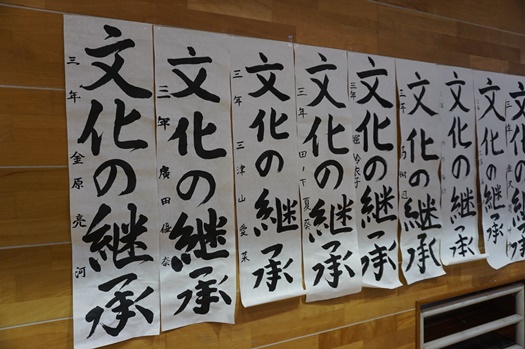 文化の継承
三年 金原亮河
文化の継承
三年 廣田優奈
文化の継承
三年 三津山愛菜
文化の継承
三年 田ノ下夏奈
文化の継承
三年
文化の継承
三年
文化の継承
文化の継承
文化の継承